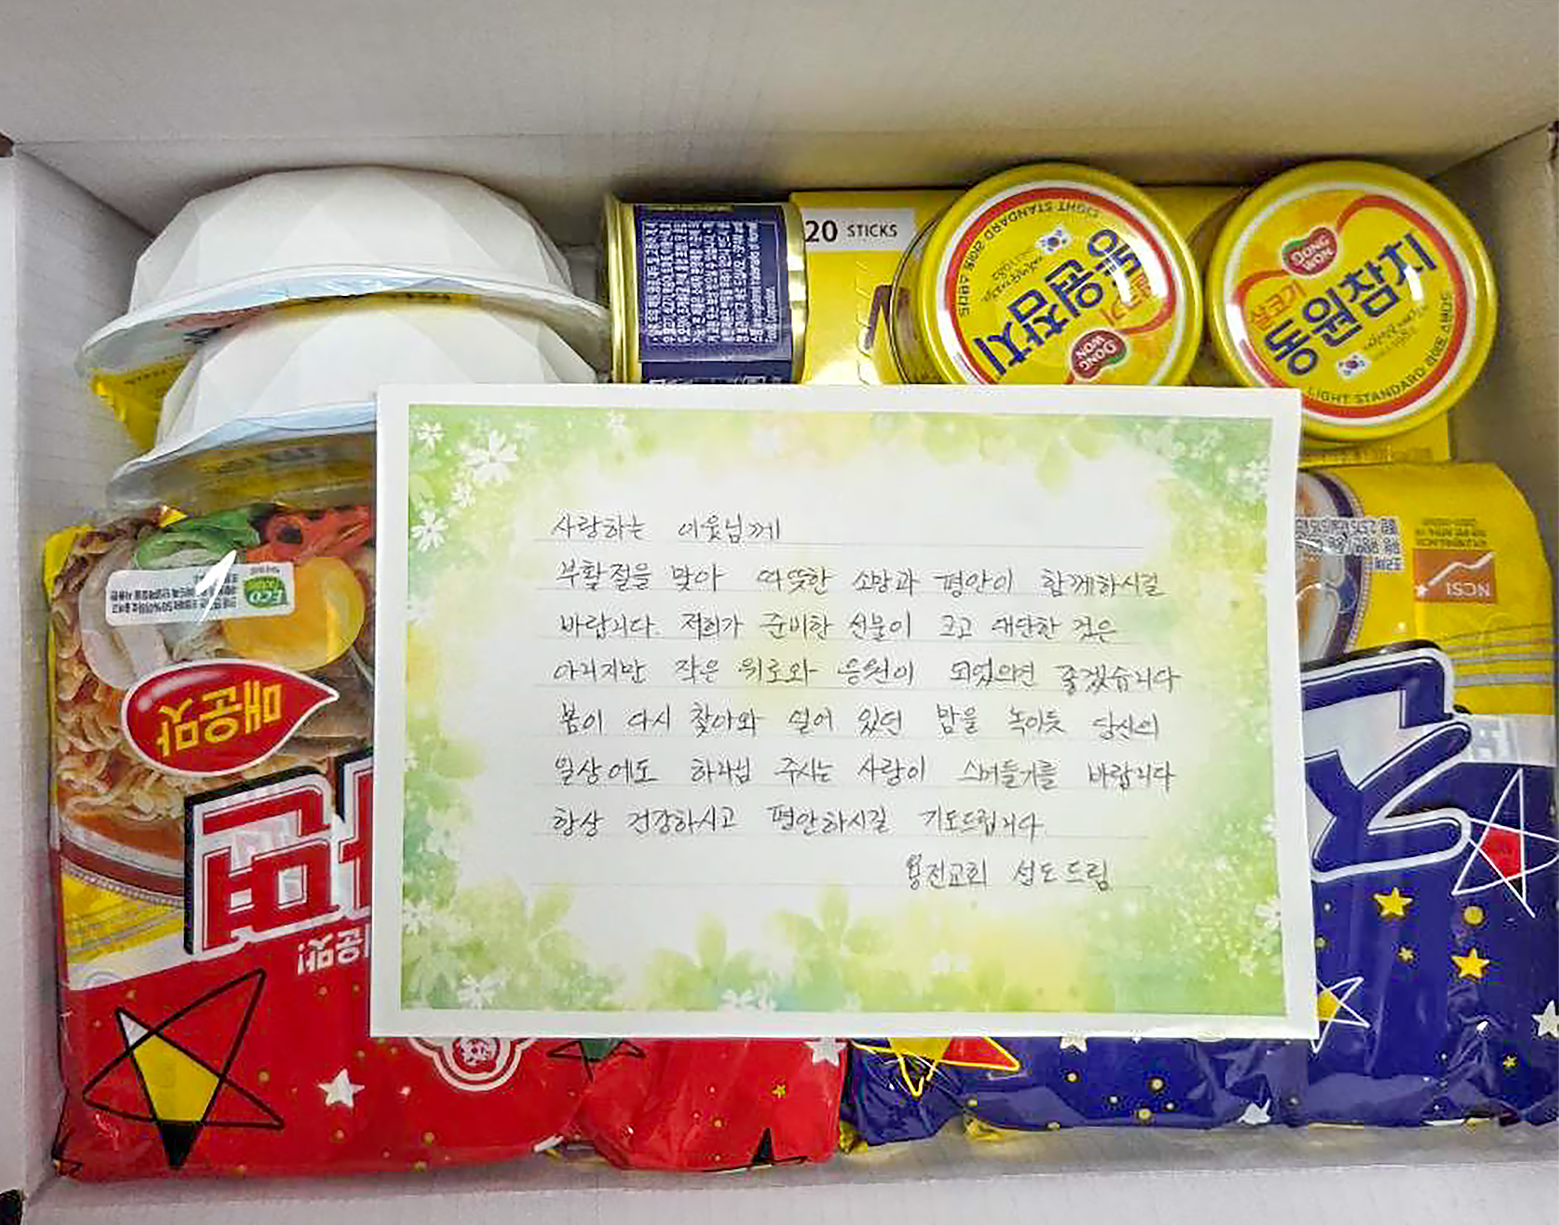 20 STICKS
LIGHT STANDARD 라이트 스탠다드
동원참치
살코기
DONG WON
DONG WON
살코기
동원참치
LIGHT STANDARD 라이트 스탠다드
ECO
매운맛
NCSI
사랑하는 이웃님께
부활절을 맞아 따뜻한 소망과 평안이 함께하시길
바랍니다. 저희가 준비한 선물이 크고 대단한 것은
아니지만 작은 위로와 응원이 되었으면 좋겠습니다
봄이 다시 찾아와 얼어 있던 땅을 녹이듯 당신의
일상에도 하나님 주시는 사랑이 스며들기를 바랍니다
항상 건강하시고 평안하시길 기도드립니다.
용진교회 성도드림